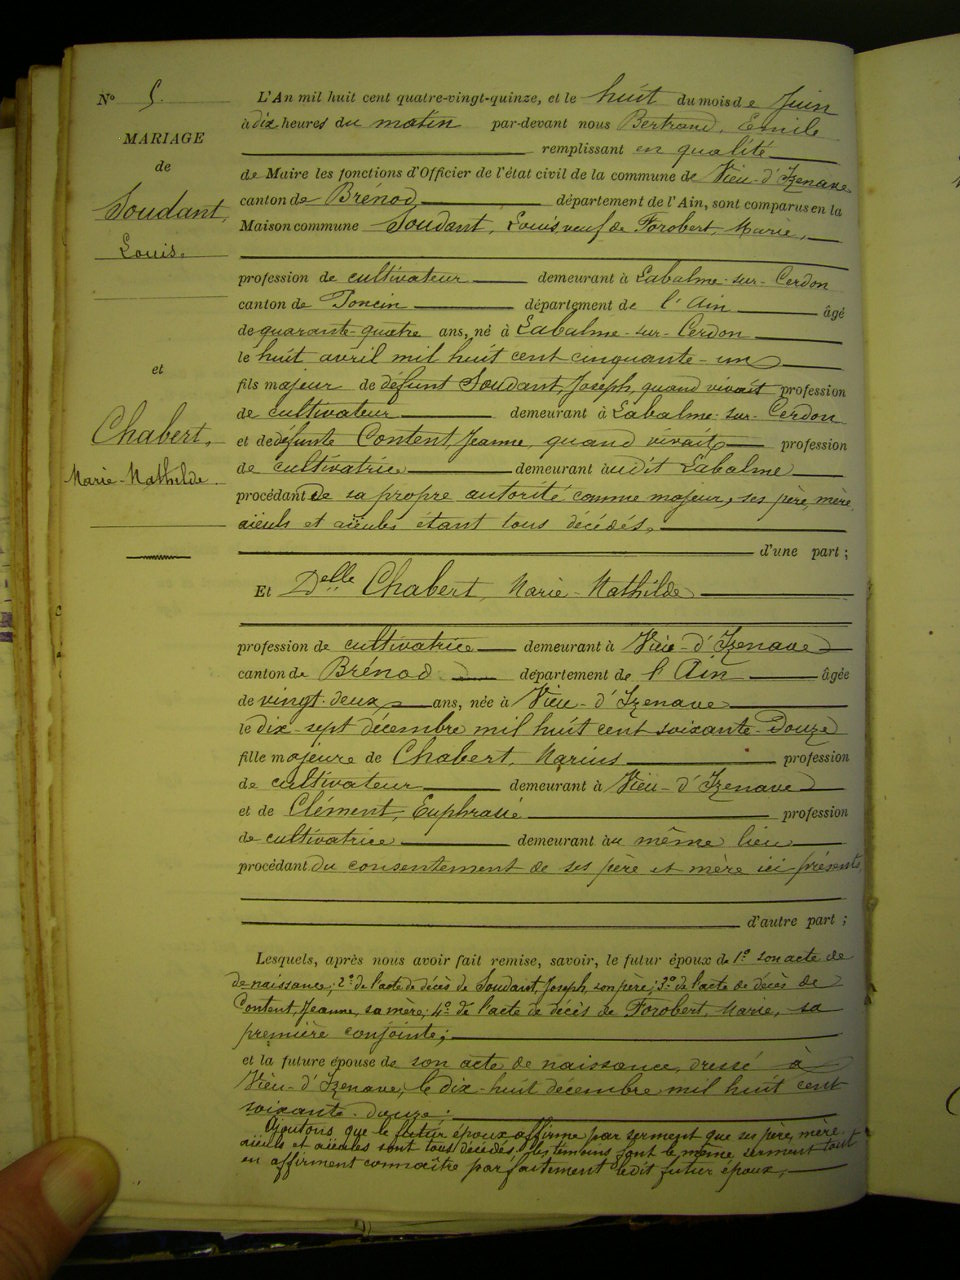 N° 5.
MARIAGE
de
Soudant,
Louis.
et
Chabert,
Marie-Mathilde
L'An mil huit cent quatre-vingt-quinze, et le huit du mois de Juin
à dix heures du matin par-devant nous Bertrand, Emile
remplissant en qualité
de Maire les fonctions d'Officier de l'état civil de la commune de Vieu-d'Izenave
canton de Brénod, département de l'Ain, sont comparus en la
Maison commune Soudant, Louis, veuf de Forobert, Marie,
profession de cultivateur demeurant à Labalme-sur-Cerdon
canton de Poncin département de l'Ain âgé
de quarante-quatre ans, né à Labalme-sur-Cerdon
le huit avril mil huit cent cinquante-un
fils majeur de défunt Soudant, Joseph, quand vivait profession
de cultivateur demeurant à Labalme-sur-Cerdon
et de défunte Content, Jeanne, quand vivait profession
de cultivatrice demeurant audit Labalme
procédant de sa propre autorité comme majeur, ses père, mère,
aïeuls et aïeules étant tous décédés,
d'une part ;
Et Delle Chabert, Marie-Mathilde
profession de cultivatrice demeurant à Vieu-d'Izenave
canton de Brénod département de l'Ain âgée
de vingt-deux ans, née à Vieu-d'Izenave
le dix-sept décembre mil huit cent soixante-douze
fille majeure de Chabert, Marius profession
de cultivateur demeurant à Vieu-d'Izenave
et de Clément, Euphrasie profession
de cultivatrice demeurant au même lieu
procédant du consentement de ses père et mère ici présents,
d'autre part ;
Lesquels, après nous avoir fait remise, savoir, le futur époux de 1° son acte de
de naissance; 2° de l'acte de décès de Soudant, Joseph, son père; 3° de l'acte de décès de
Content, Jeanne, sa mère; 4° de l'acte de décès de Forobert, Marie, sa
première conjointe;
et la future épouse de son acte de naissance, dressé à
Vieu-d'Izenave, le dix-huit décembre mil huit cent
soixante-douze;
Ajoutons que le futur époux affirme par serment que ses père, mère
aïeuls et aïeules sont tous décédés, les témoins font le même serment tout
en affirment connaître parfaitement ledit futur époux;